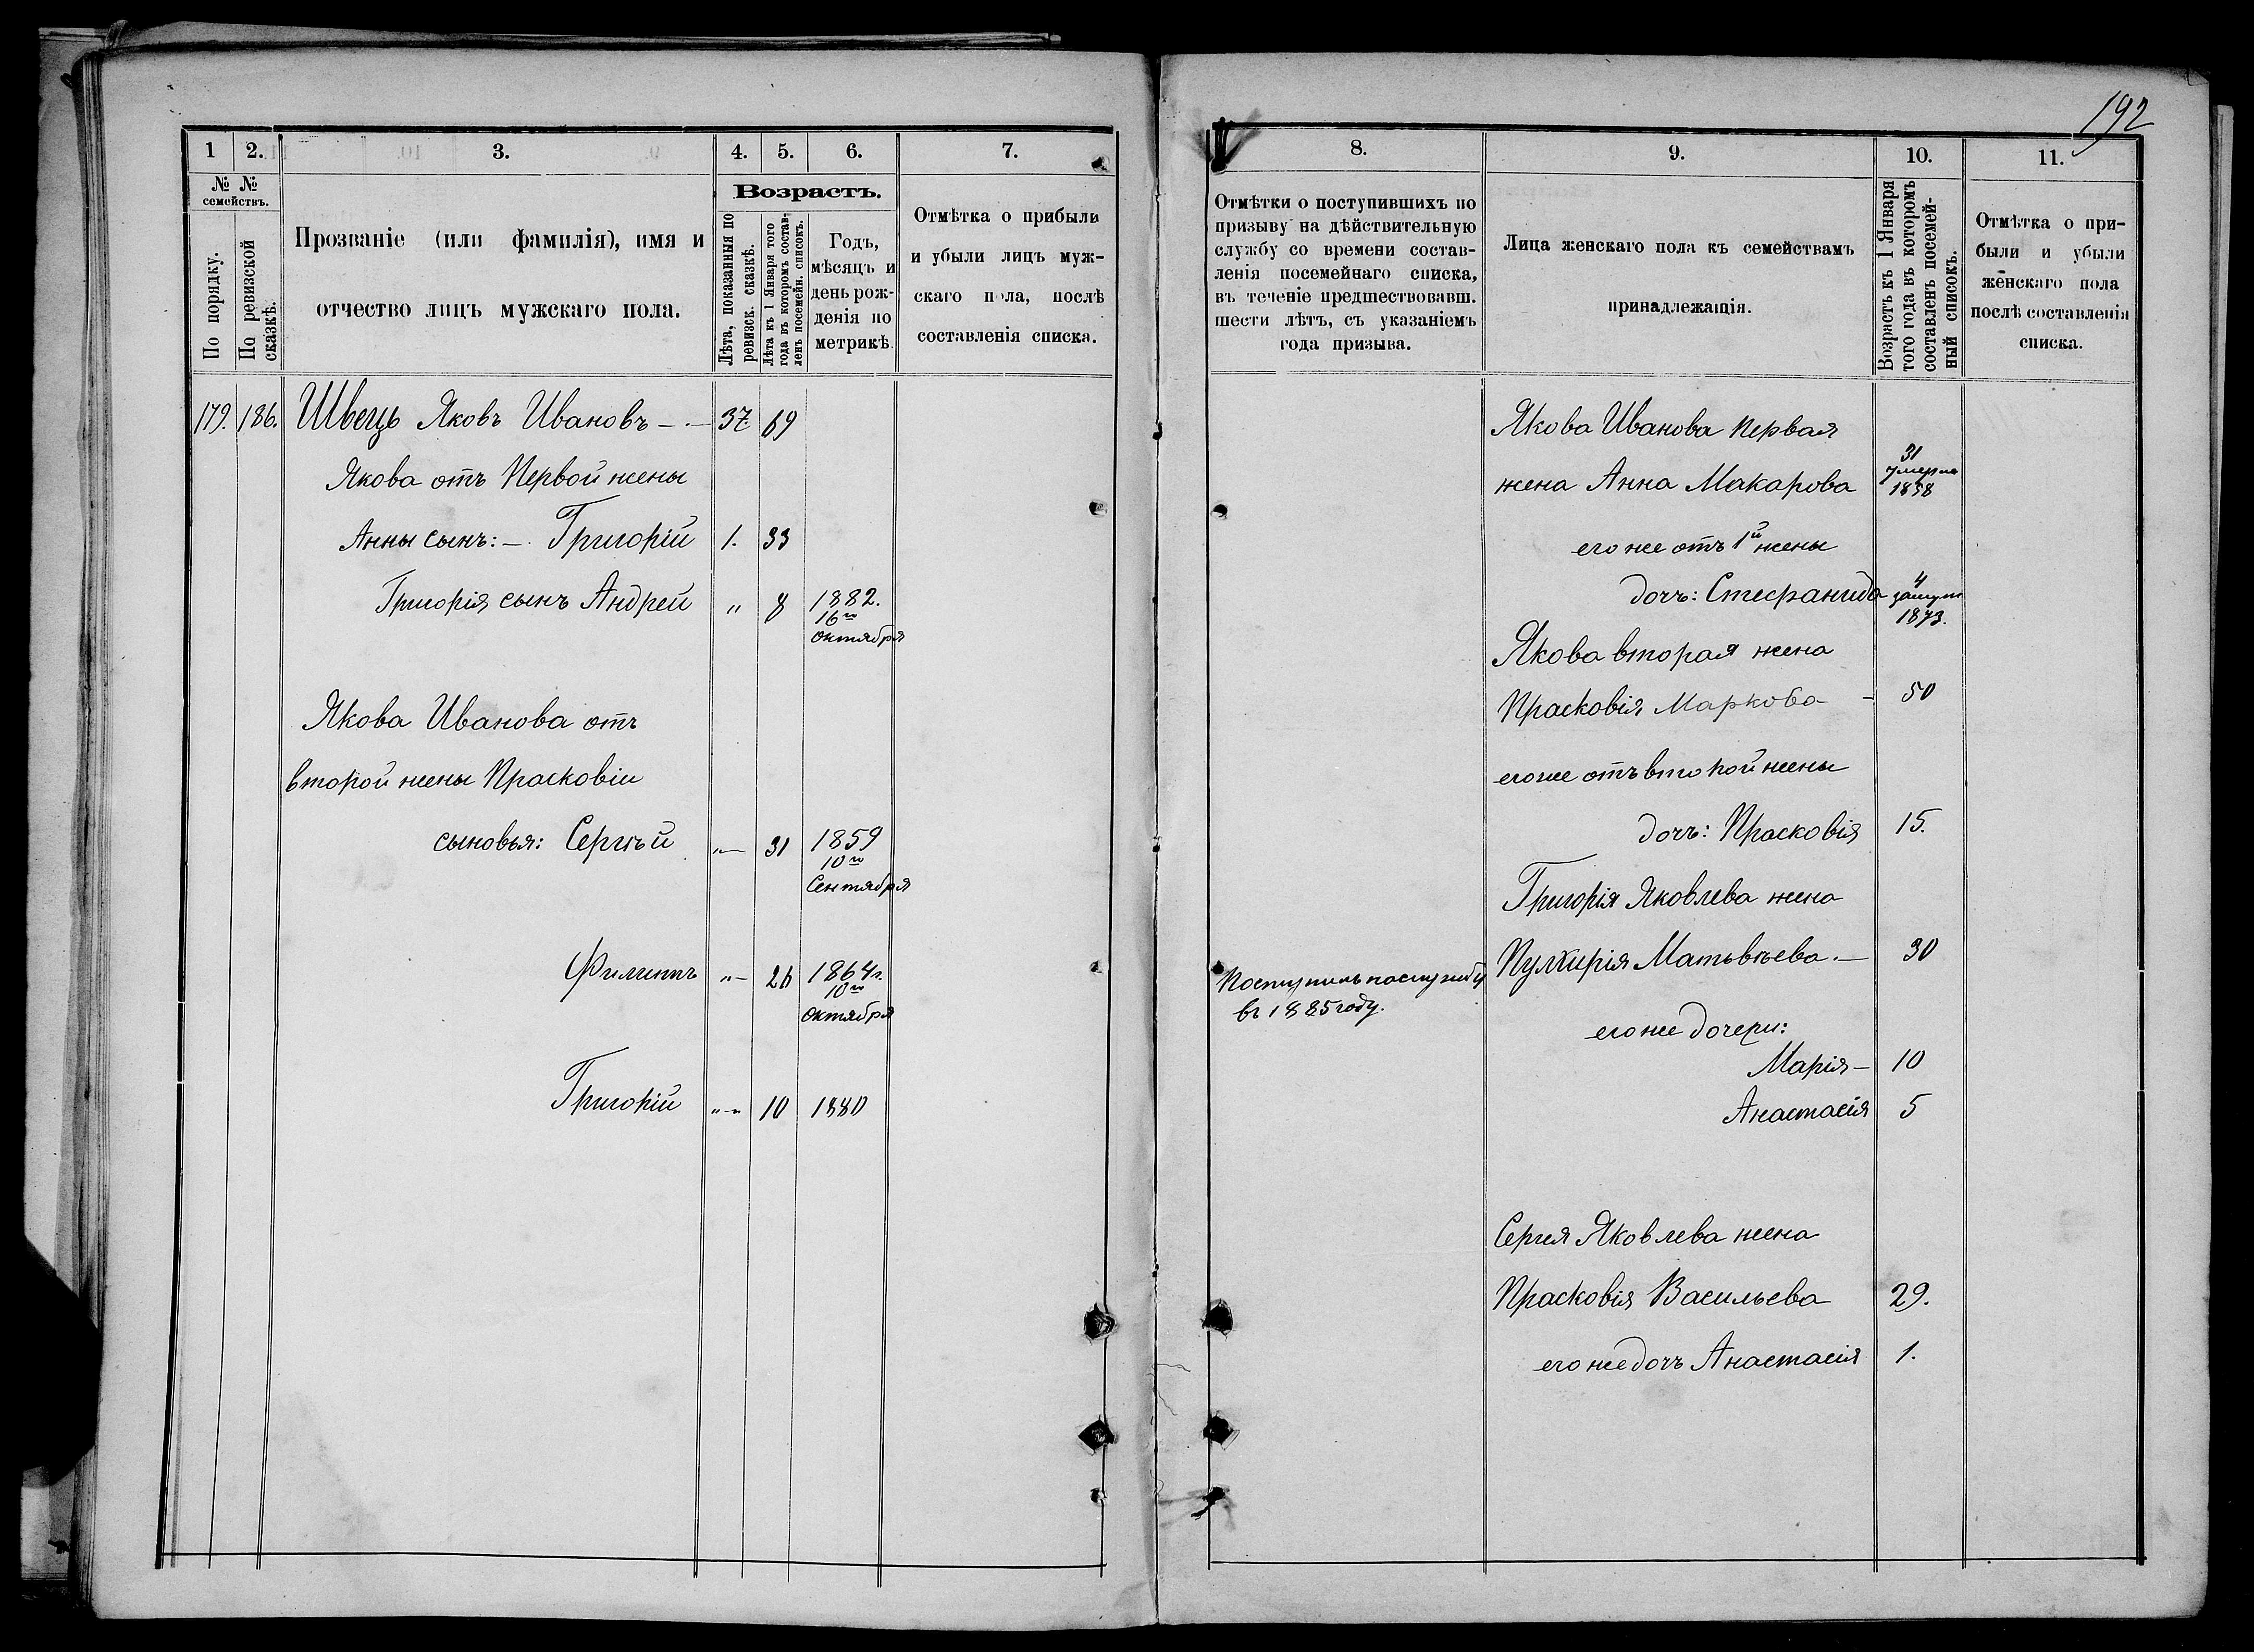 192
1
2.
3.
4.
5.
6.
7.
№ №
семействъ.
По порядку.
По ревизской
сказкѣ.
Прозваніе (или фамилія), имя и
отчество лицъ мужскаго пола.
Возрастъ.
Лѣта, показанныя по
ревизск. сказкѣ.
Лѣта къ 1 Января того
года въ которомъ состав-
ленъ посемейн. списокъ.
Годъ,
мѣсяцъ и
день рож-
денія по
метрикѣ.
Отмѣтка о прибыли
и убыли лицъ муж-
скаго пола, послѣ
составленія списка.
179. 186. Швецъ Яковъ Ивановъ - . - 37. 69
Якова отъ Первой жены
Анны сынъ: - . Григорій 1. 33
Григорія сынъ Андрей „ 8 1882.
16го
октября
Якова Иванова отъ
второй жены Прасковіи
сыновья: Сергѣй „— 31 1859
10го
Сентября
Филиппъ „— 26 1864г.
10го
октября
Григорій „-„ 10 1880
8.
9.
10.
11.
Отмѣтки о поступившихъ по
призыву на дѣйствительную
службу со времени состав-
ленія посемейнаго списка,
въ теченіе предшествовавш.
шести лѣтъ, съ указаніемъ
года призыва.
Лица женскаго пола къ семействамъ
принадлежащія.
Возрастъ къ 1 Января
того года въ которомъ
составленъ посемей-
ный списокъ.
Отмѣтка о при-
были и убыли
женскаго пола
послѣ составленія
списка.
Якова Иванова первая
жена Анна Макарова 31
умерла
1858
его же отъ 1й жены
дочь: Стефанида 4
замуж
1873.
Якова вторая жена
Прасковія Маркова - 50
его же отъ второй жены
дочь: Прасковія 15.
Григорія Яковлева жена
Пулхирія Матьвѣева. — 30
Поступилъ на службу
въ 1885 году.
его же дочери:
Марія - 10
Анастасія 5
Сергея Яковлева жена
Прасковія Васильева 29.
его же дочь Анастасія 1.